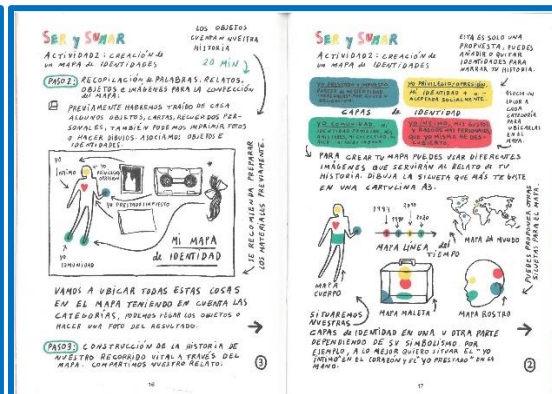 SER y SUMAR
ACTIVIDAD 2: CREACIÓN de
UN MAPA de IDENTIDADES
20 MIN
LOS OBJETOS
CUENTAN NUESTRA
HISTORIA
PASO 2: RECOPILACIÓN de PALABRAS, RELATOS,
OBJETOS e IMÁGENES PARA LA CONFECCIÓN
del MAPA:
PREVIAMENTE HABREMOS TRAÍDO DE CASA
ALGUNOS OBJETOS, CARTAS, RECUERDOS PER-
SONALES, TAMBIÉN PODEMOS IMPRIMIR FOTOS
o HACER DIBUJOS. ASOCIAMOS OBJETOS E
IDENTIDADES:
YO
ÍNTIMO
YO
PRIVILEGIO
OPRESIÓN
YO PRESTADO/IMPUESTO
YO
COMUNIDAD
MI MAPA
de IDENTIDAD
SE RECOMIENDA PREPARAR
LOS MATERIALES PREVIAMENTE.
VAMOS A UBICAR TODAS ESTAS COSAS
EN EL MAPA TENIENDO EN CUENTA LAS
CATEGORÍAS, PODEMOS PEGAR LOS OBJETOS O
HACER UNA FOTO DEL RESULTADO.
PASO 3: CONSTRUCCIÓN DE LA HISTORIA DE
NUESTRO RECORRIDO VITAL A TRAVÉS DEL
MAPA. COMPARTIMOS NUESTRO RELATO.
3
16
SER y SUMAR
ACTIVIDAD 2: CREACIÓN de
UN MAPA de IDENTIDADES
ESTA ES SOLO UNA
PROPUESTA, PUEDES
AÑADIR O QUITAR
IDENTIDADES PARA
NARRAR TU HISTORIA.
YO PRESTADO e IMPUESTO
YO PRIVILEGIO/OPRESIÓN
MI IDENTIDAD
ACEPTADA SOCIALMENTE.
CAPAS de IDENTIDAD
YO COMUNIDAD
YO ÍNTIMO, MIS GUSTOS
Y RASGOS MÁS PERSONALES
QUE YO MISMA HE DES-
CUBIERTO.
ASOCIA UN
COLOR A
CADA
CATEGORÍA
PARA
UBICARLAS
EN EL
MAPA.
PARA CREAR TU MAPA PUEDES USAR DIFERENTES
IMÁGENES QUE SERVIRÁN AL RELATO DE TU
HISTORIA. DIBUJA LA SILUETA QUE MÁS TE GUSTE
EN UNA CARTULINA A3.
2020
MAPA LÍNEA del
TIEMPO
MAPA DEL MUNDO
MAPA
CUERPO
MAPA MALETA
MAPA ROSTRO
PUEDES PROPONER OTRAS
SILUETAS PARA EL MAPA.
SITUAREMOS
NUESTRAS
CAPAS de IDENTIDAD EN UNA U OTRA PARTE
DEPENDIENDO DE SU SIMBOLISMO. POR
EJEMPLO, A LO MEJOR QUIERO SITUAR EL "YO
ÍNTIMO" EN EL CORAZÓN y EL "YO PRESTADO" EN LA
MANO.
2
17